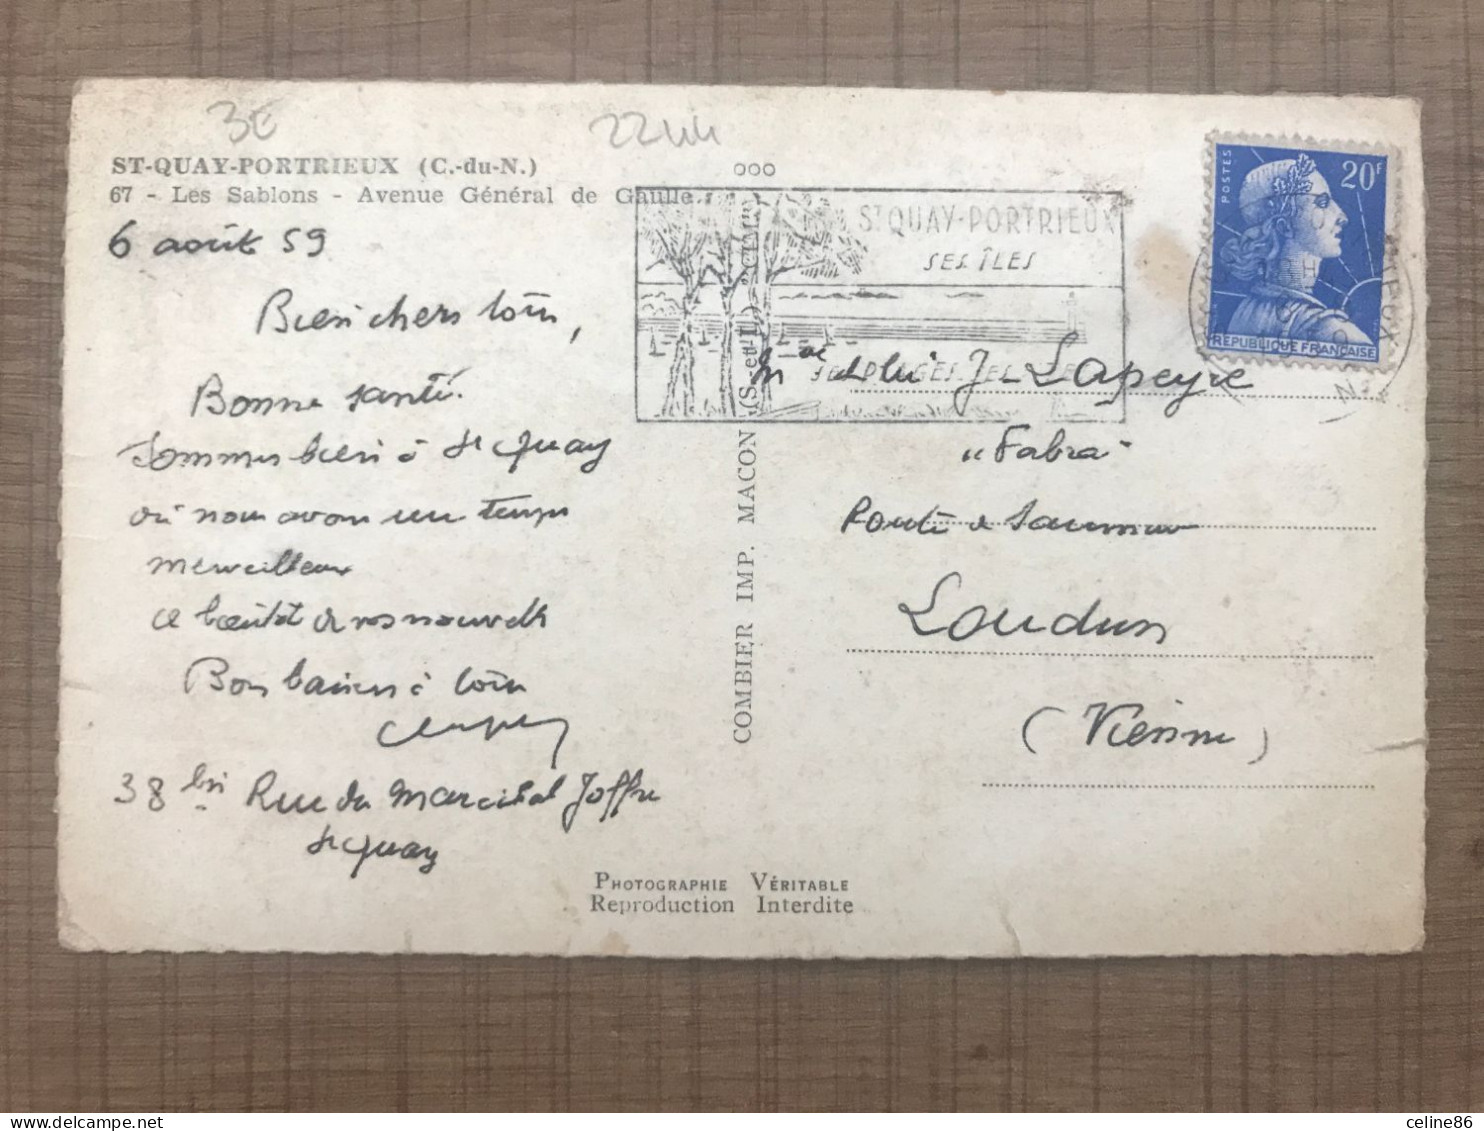 3E
2244
ST-QUAY-PORTRIEUX (C.-du-N.)
67 - Les Sablons - Avenue Général de Gaulle.
6 août 59
Bien chers tous,
Bonne santé.
Sommes bien à St Quay
où nous avons un temps
merveilleux
A bientôt de vos nouvelles
Bons baisers à tous
38 bis Rue du Marechal Joffre
St Quay
ooo
COMBIER IMP. MACON (S.-et-L.)
ST QUAY-PORTRIEUX
SES ÎLES
SES PLAGES
POSTES
20F
RÉPUBLIQUE FRANÇAISE
J. Lapeyre
"Fabra"
Route de Saumur
Loudun
(Vienne)
PHOTOGRAPHIE VÉRITABLE
Reproduction Interdite
celine86